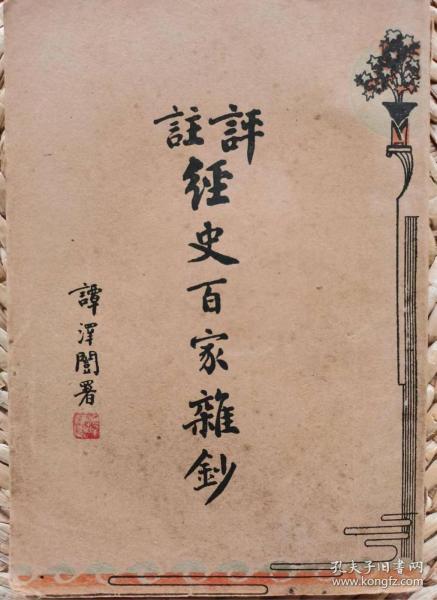 評註
經史百家雜鈔
譚澤闓署
孔夫子旧书网
www.kongfz.com